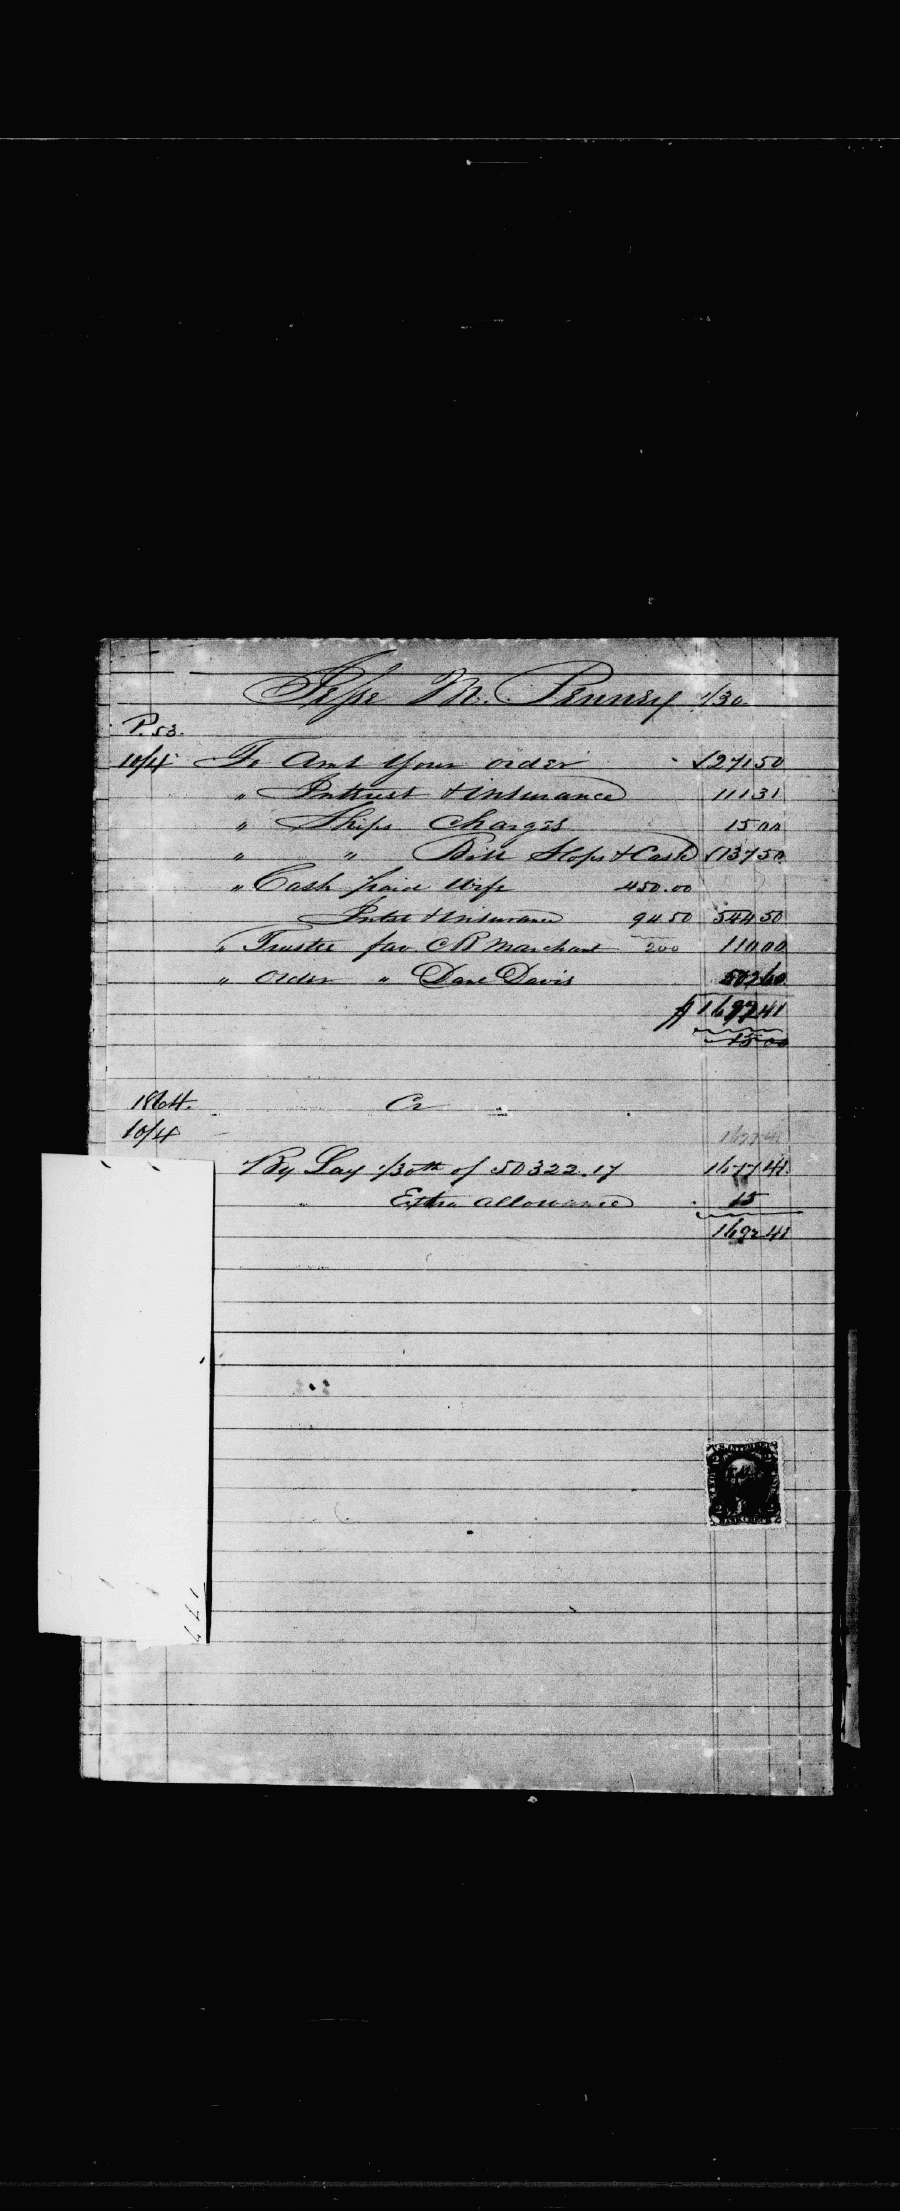 Jesse M. Penney 1/30
P. 53.
10/4 To Amt Your order 271 50
" Intrest & Insurance 111 31
" Ships Charges 15 00
" " Bill Slops & Cash 137 50
" Cash paid Wife 450.00
Intst & Insurance 94 50 544 50
" Trustee fav. C R Marchant 200 110 00
" Order " Dane Davis 502 60
$1692 41
15 00
1864. Cr
10/4 1677 41
By Lay 1/30th of 50322.17 1677 41.
Extra allowance 15
1692 41